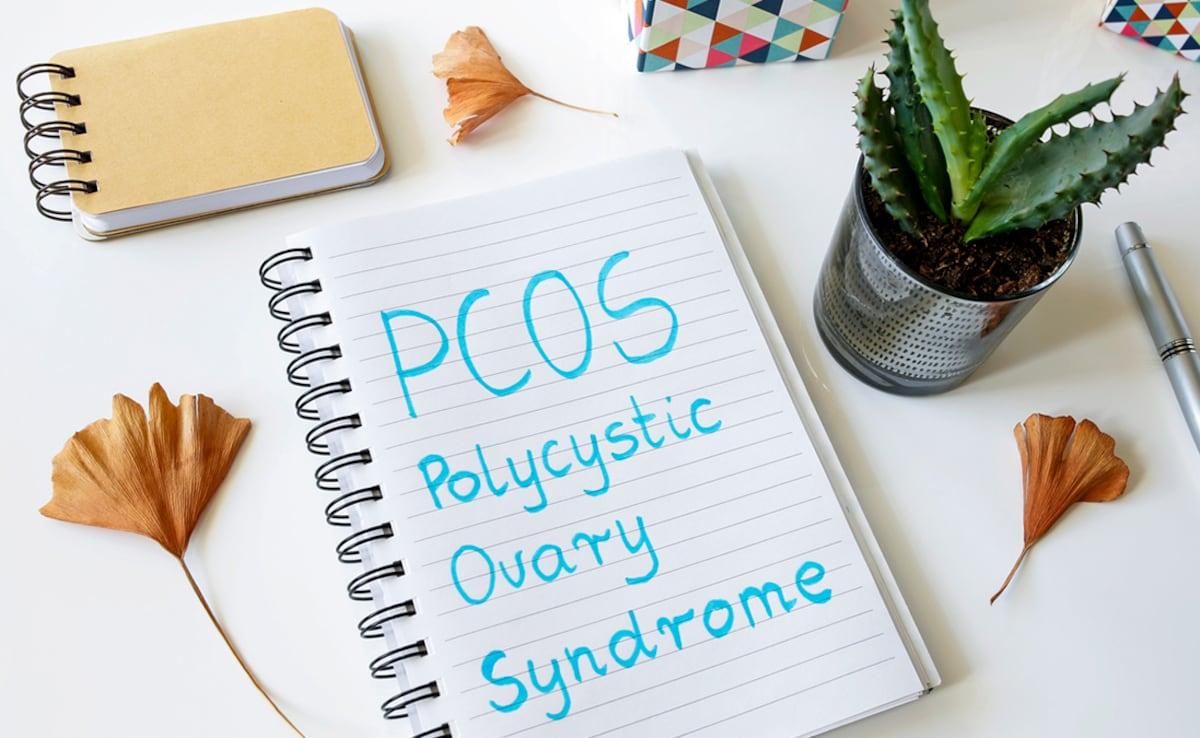 PCOS
Polycystic
Ovary
Syndrome